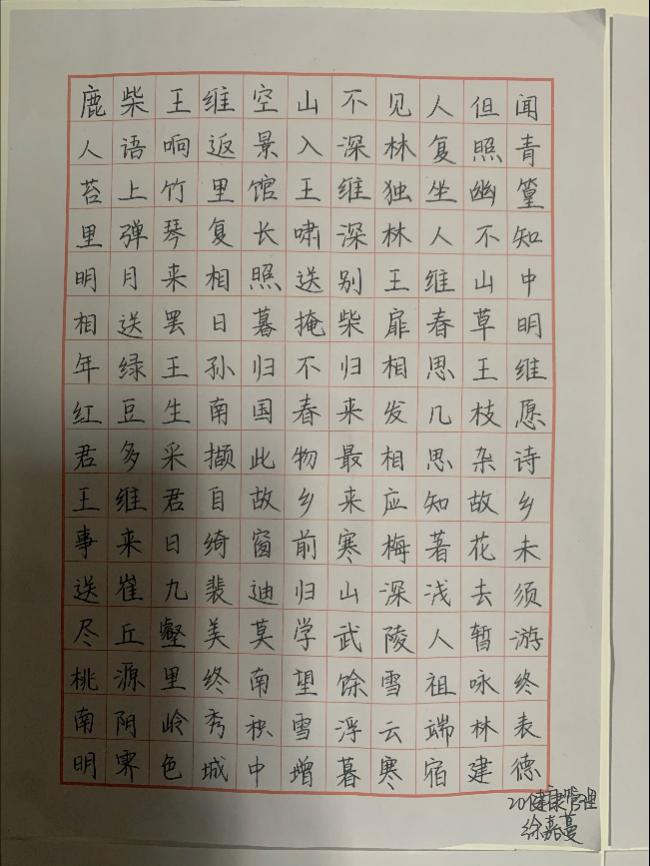 鹿柴王维空山不见人但闻
人语响返景入深林复照青
苔上竹里馆王维独坐幽篁
里弹琴复长啸深林人不知
明月来相照送别王维山中
相送罢日暮掩柴扉春草明
年绿王孙归不归相思王维
红豆生南国春来发几枝愿
君多采撷此物最相思杂诗
王维君自故乡来应知故乡
事来日绮窗前寒梅著花未
送崔九裴迪归山深浅去须
尽丘壑美莫学武陵人暂游
桃源里终南望馀雪祖咏终
南阴岭秀积雪浮云端林表
明霁色城中增暮寒宿建德
20健康管理
徐嘉蔓